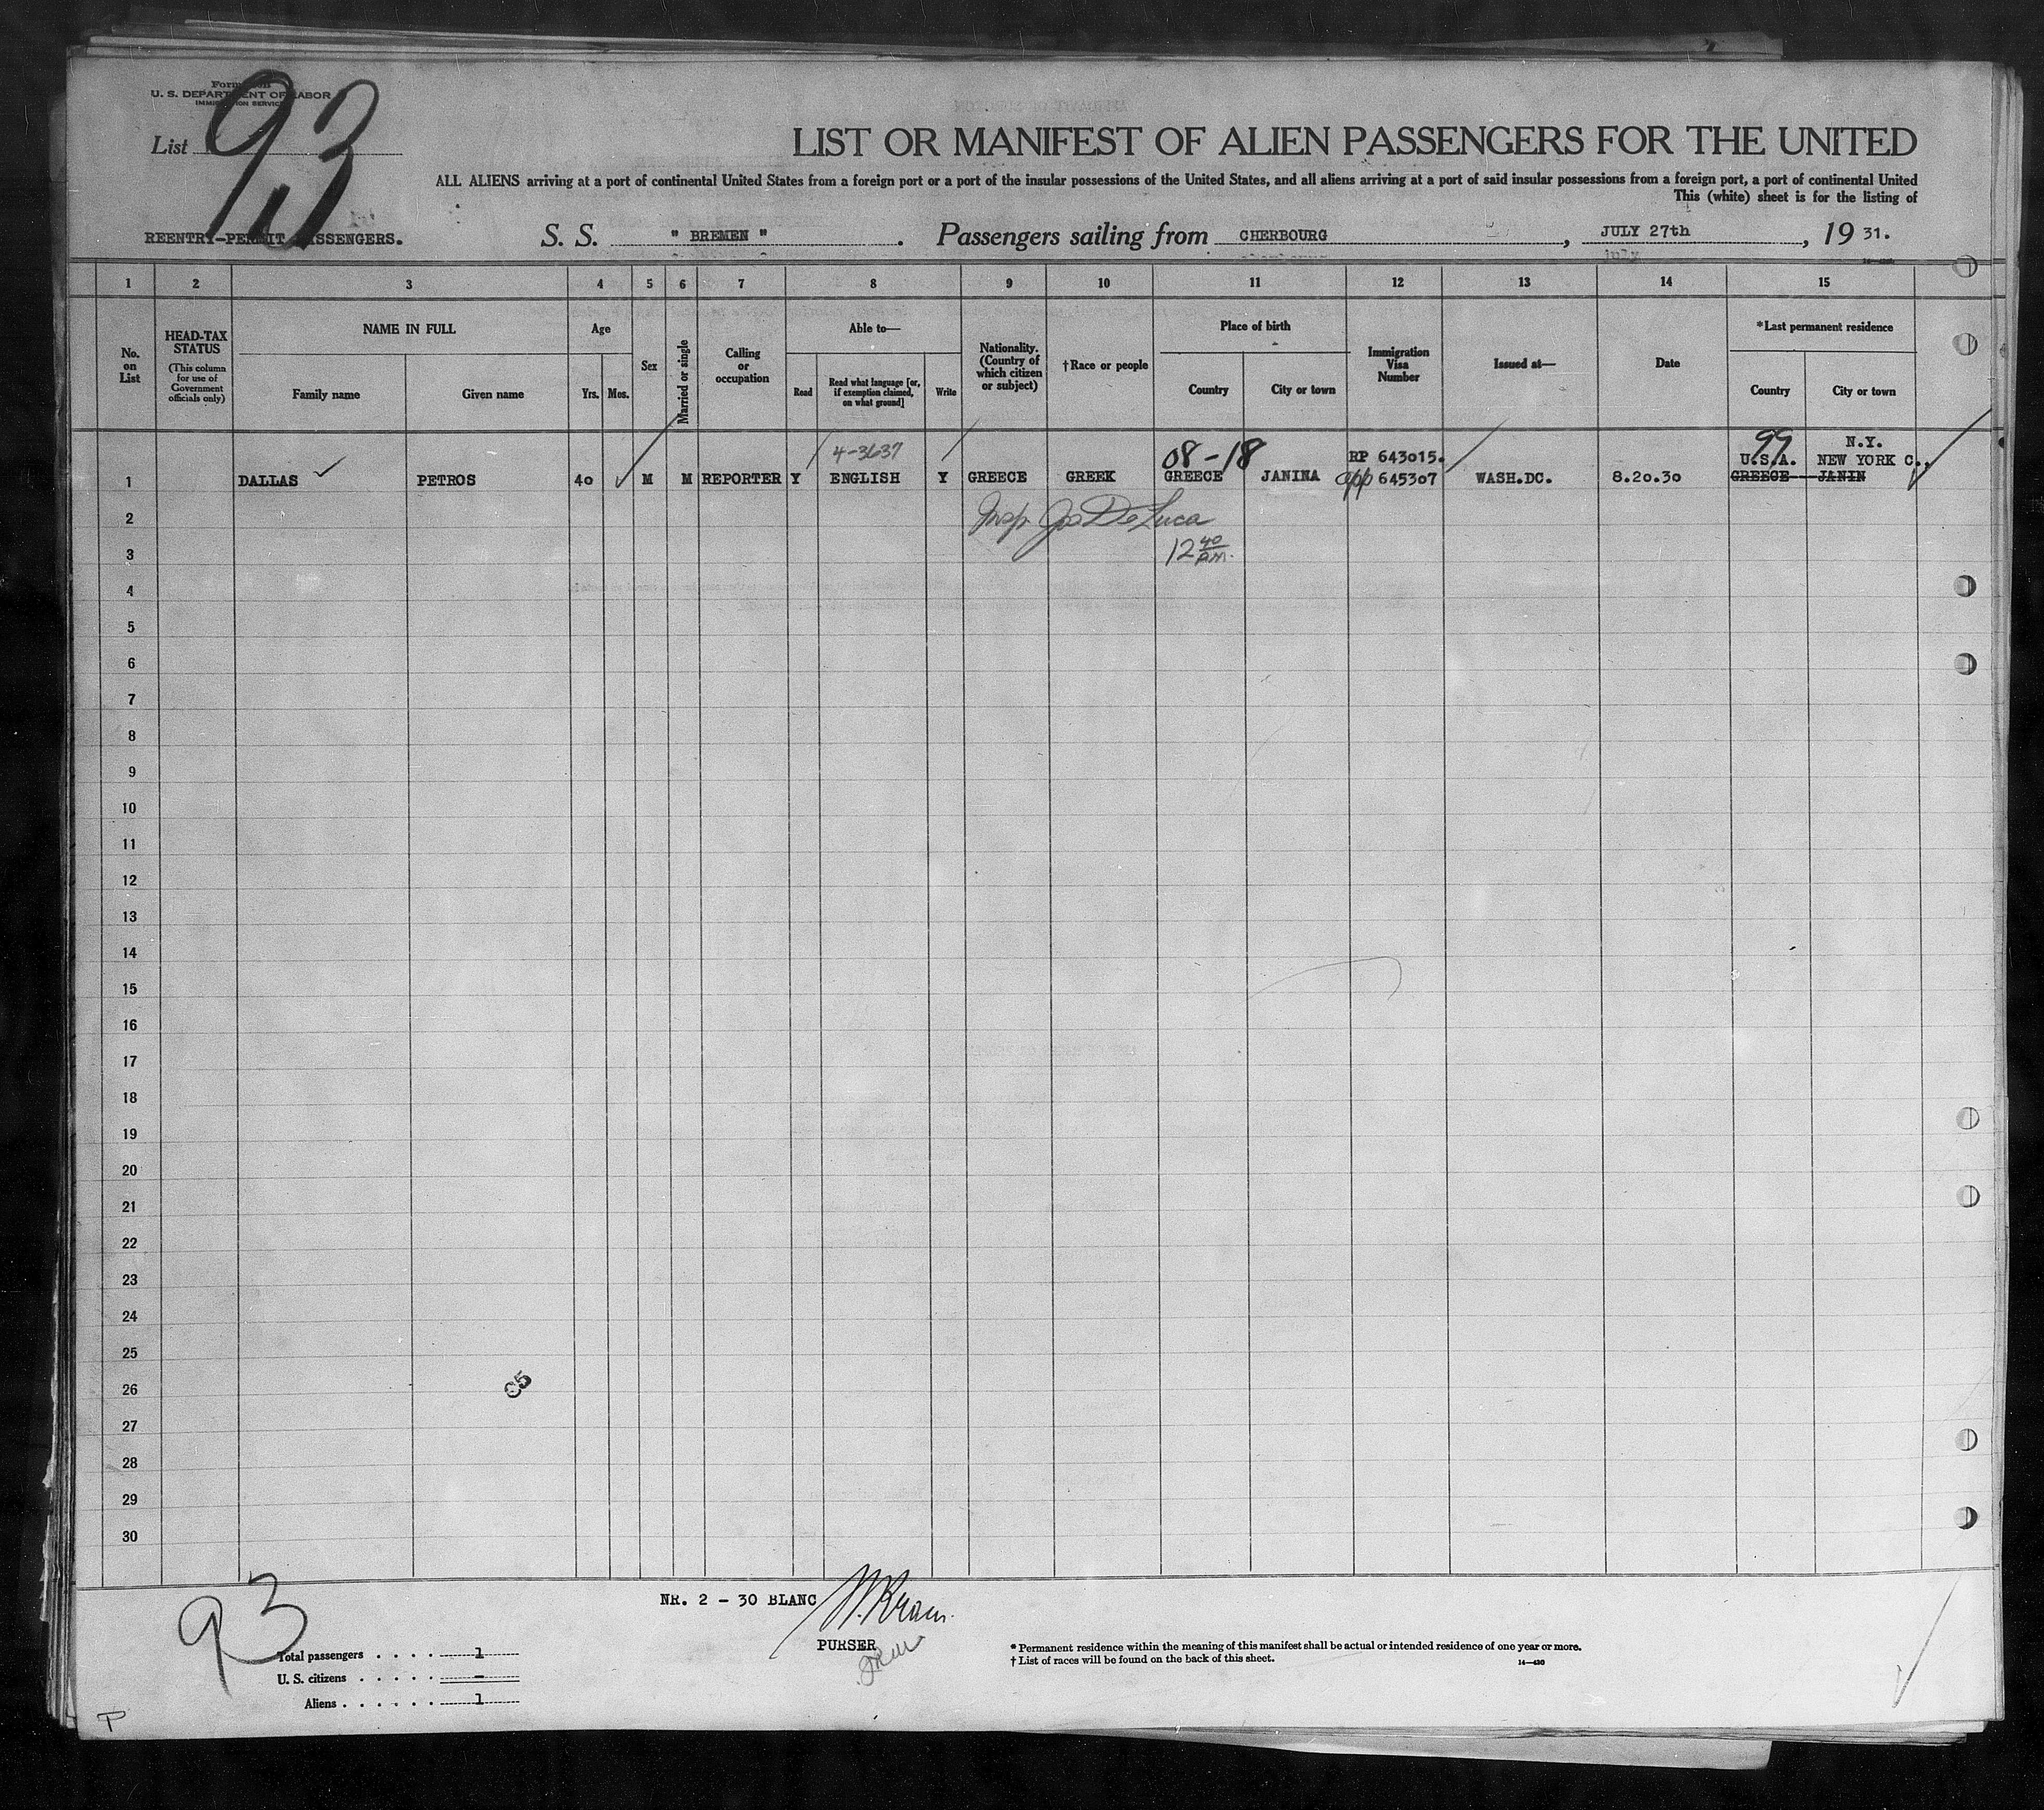 U. S. DEPARTMENT OF LABOR
IMMIGRATION SERVICE
List 93
LIST OR MANIFEST OF ALIEN PASSENGERS FOR THE UNITED
ALL ALIENS arriving at a port of continental United States from a foreign port or a port of the insular possessions of the United States, and all aliens arriving at a port of said insular possessions from a foreign port, a port of continental United
This (white) sheet is for the listing of
REENTRY-PERMIT PASSENGERS.
S. S. " BREMEN " . Passengers sailing from CHERBOURG , JULY 27th , 19 31.
1 2 3 4 5 6 7 8 9 10 11 12 13 14 15
No. on List
HEAD-TAX STATUS
(This column for use of Government officials only)
NAME IN FULL
Family name
Given name
Age
Yrs.
Mos.
Sex
Married or single
Calling or occupation
Able to—
Read
Read what language [or, if exemption claimed, on what ground]
Write
Nationality. (Country of which citizen or subject)
†Race or people
Place of birth
Country
City or town
Immigration Visa Number
Issued at—
Date
*Last permanent residence
Country
City or town
4-3637 08-18 RP 643015. 99 N.Y.
U.S.A. NEW YORK C.,
1 DALLAS PETROS 40 M M REPORTER Y ENGLISH Y GREECE GREEK GREECE JANINA app 645307 WASH.DC. 8.20.30 GREECE---JANIN
2 Insp. Jos De Luca
3 12 40 P.M.
4
5
6
7
8
9
10
11
12
13
14
15
16
17
18
19
20
21
22
23
24
25
26
27
28
29
30
93
NR. 2 - 30 BLANC
PURSER
Total passengers . . . . 1
U. S. citizens . . . . . -
Aliens . . . . . . 1
* Permanent residence within the meaning of this manifest shall be actual or intended residence of one year or more.
† List of races will be found on the back of this sheet.
14—430